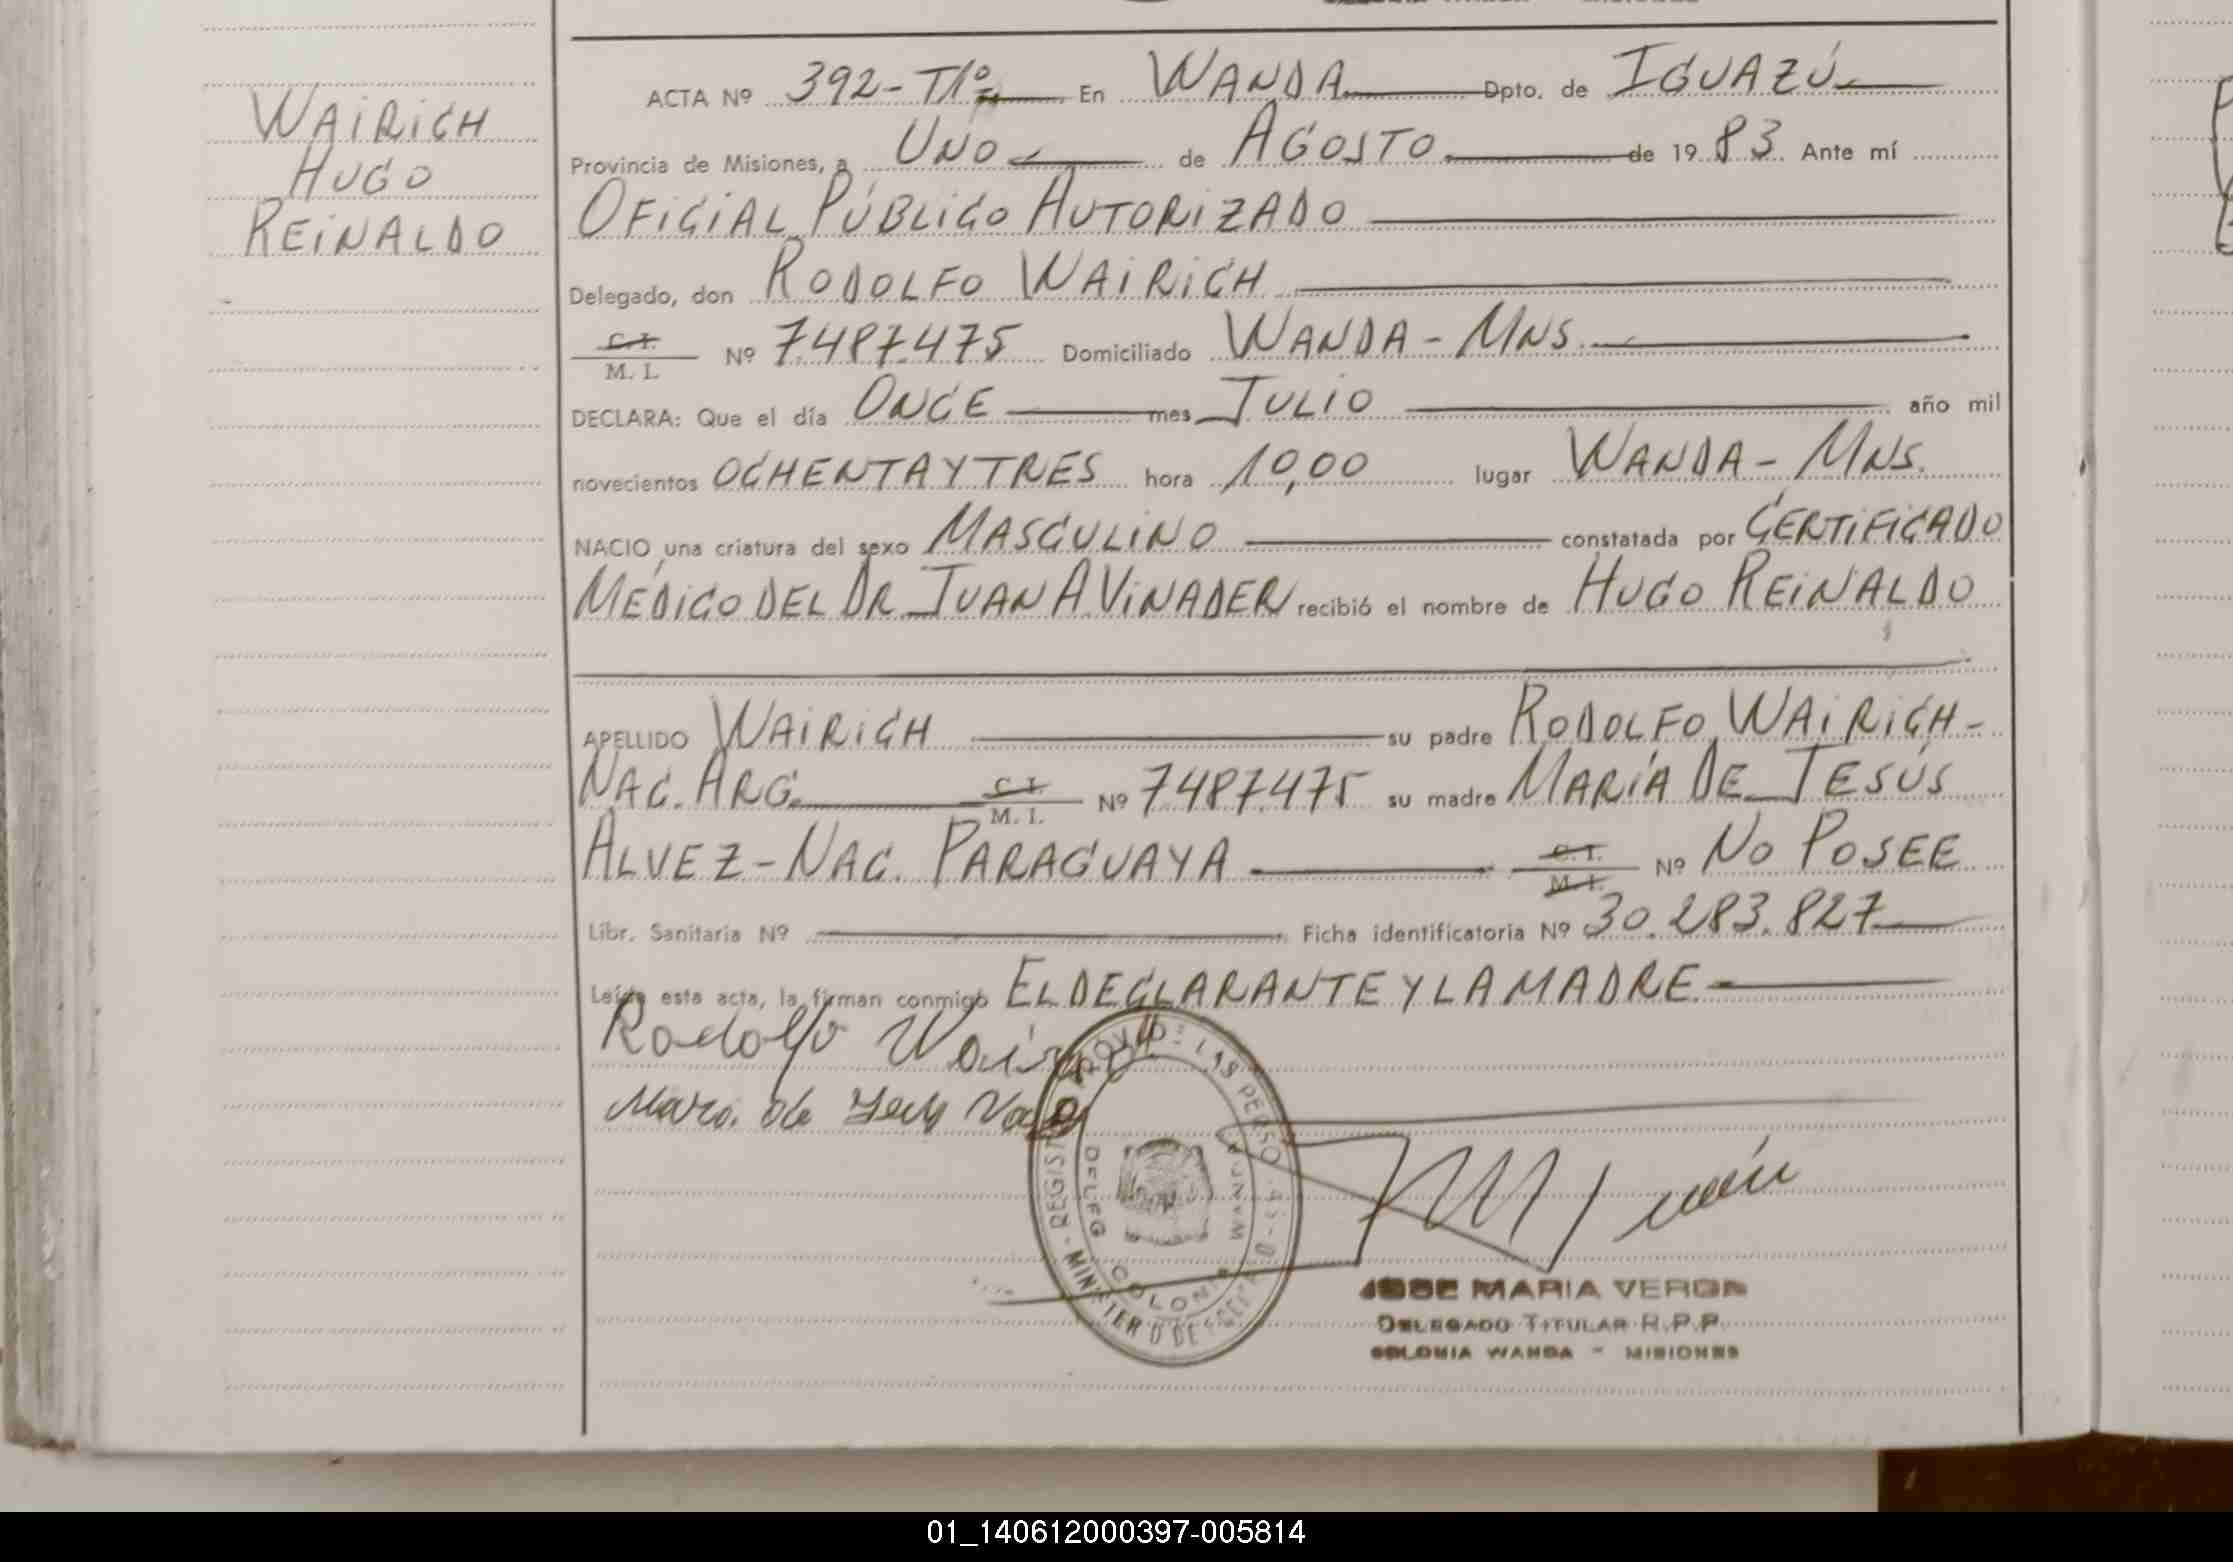 WAIRICH
HUGO
REINALDO
ACTA Nº 392-Tº1º En WANDA Dpto. de IGUAZÚ
Provincia de Misiones, a UNO de AGOSTO de 1983 Ante mí
OFICIAL PÚBLICO AUTORIZADO
Delegado, don RODOLFO WAIRICH
C.I.
M. I. Nº 7487475 Domiciliado WANDA - MNS.
DECLARA: Que el día ONCE mes JULIO año mil
novecientos OCHENTA Y TRES hora 10,00 lugar WANDA - MNS.
NACIO una criatura del sexo MASCULINO constatada por CERTIFICADO
MÉDICO DEL DR JUAN A VINADER recibió el nombre de HUGO REINALDO
APELLIDO WAIRICH su padre RODOLFO WAIRICH-
NAC. ARG. C. I. M. I. Nº 7487475 su madre MARÍA DE JESÚS
ALVEZ - NAC. PARAGUAYA C. I. M. I. Nº NO POSEE
Libr. Sanitaria Nº Ficha identificatoria Nº 30.283.827
Leída esta acta, la firman conmigo EL DECLARANTE Y LA MADRE
Rodolfo
de
DELEG COLONIA WANDA
JOSE MARIA VERON
DELEGADO TITULAR R.P.P.
COLONIA WANDA - MISIONES
01_140612000397-005814